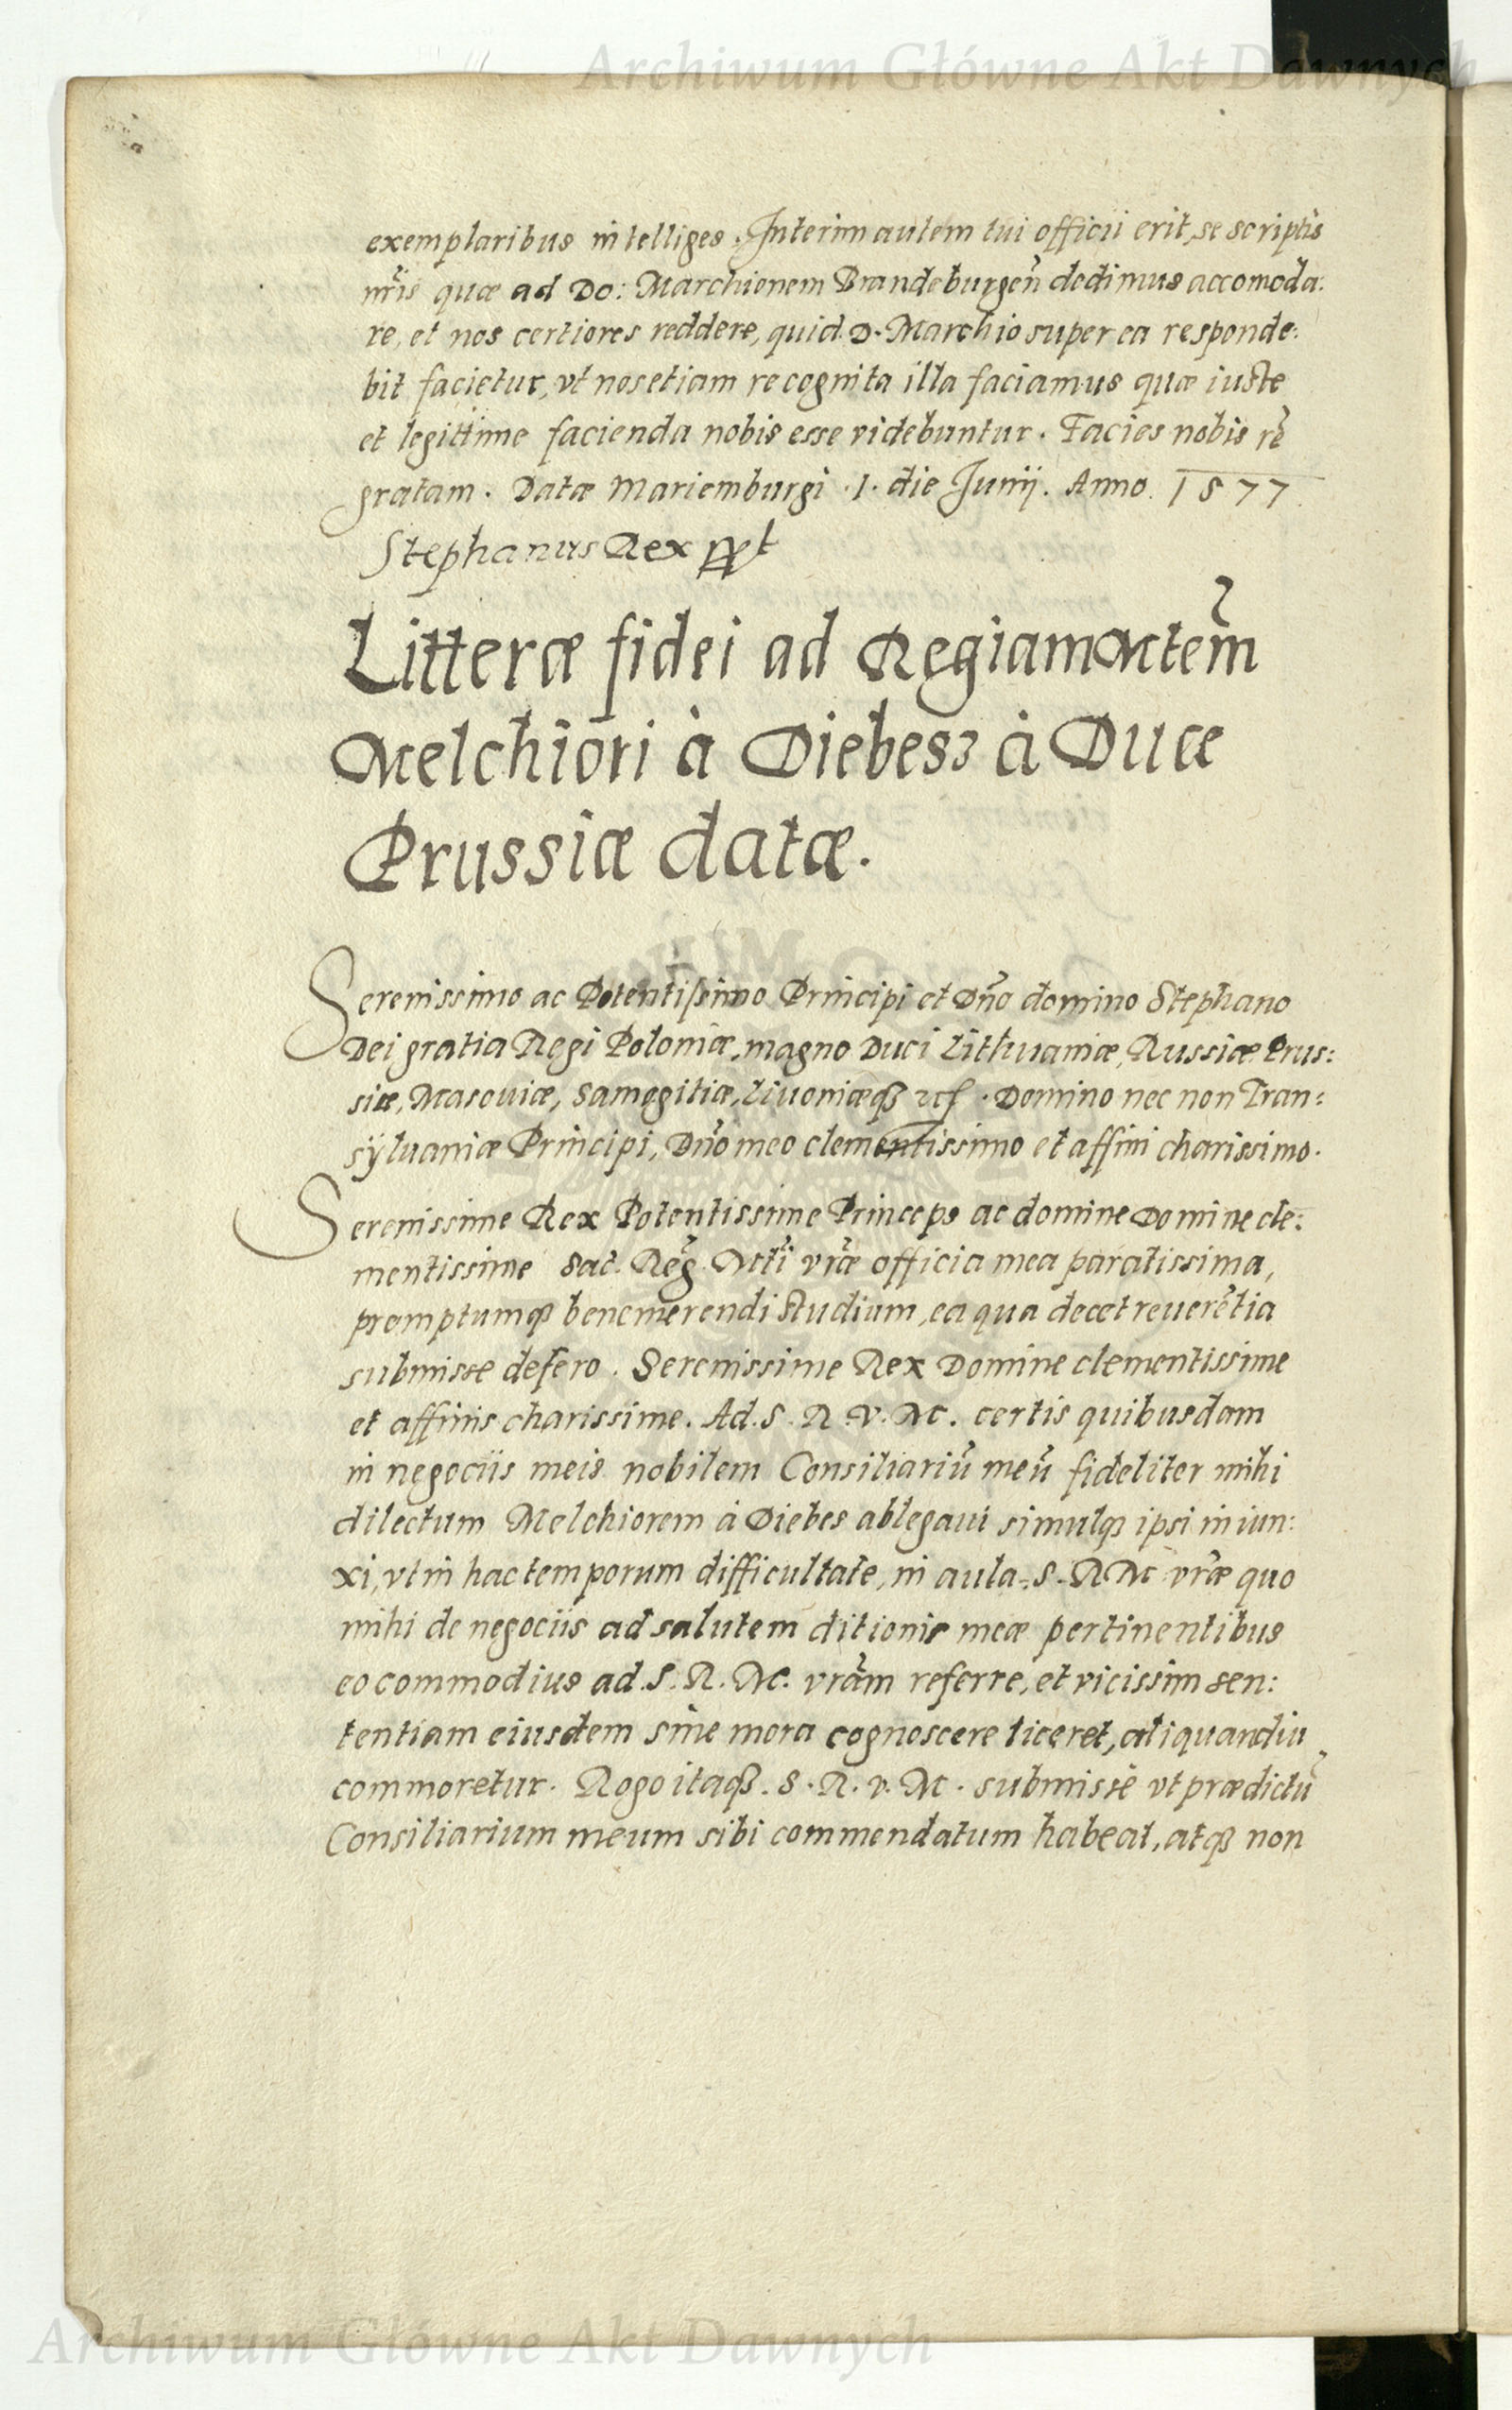 Archiwum Główne Akt Dawnych
exemplaribus intelliges. Interim autem tui officii erit, se scriptis
nr̃is quæ ad Do: Marchionem Brandeburgeñ dedimus accomoda:
re, et nos certiores reddere, quid D. Marchio super ea responde:
bit facietur, vt nos etiam recognita illa faciamus quæ iuste
et legittime facienda nobis esse videbuntur. Facies nobis rẽ
gratam. Datæ Mariemburgi .1. die Junij. Anno. 1577
Stephanus Rex sspt
Litteræ fidei ad Regiam Mtem̃
Melchiori à Diebesz à Duce
Prussiæ datæ.
Serenissimo ac Potentissimo Principi et Dño domino Stephano
Dei gratia Regi Poloniæ, magno Duci Lithuaniæ, Russiæ Prus:
siæ, Masouiæ, Samogitiæ, Liuoniæqꝫ etc. Domino nec non Tran:
syluaniæ Principi, Dño meo clementissimo et affini charissimo.
Serenissime Rex Potentissime Princeps ac domine Domine cle:
mentissime Sac. Reg̃. Mtĩ vrãe officia mea paratissima,
promptumqꝫ benemerendi studium, ea qua decet reuerẽtia
submisse defero. Serenissime Rex Domine clementissime
et affinis charissime. Ad. S. R. V. M. certis quibusdam
in negociis meis nobilem Consiliariũ meũ fideliter mihi
dilectum Melchiorem à Diebes ablegaui simulqꝫ ipsi iniun:
xi, vt in hac temporum difficultate, in aula S. R M vrãe quo
mihi de negociis ad salutem ditionis meæ pertinentibus
eo commodius ad S. R. M. vrãm referre, et vicissim sen:
tentiam eiusdem sine mora cognoscere liceret, aliquandiu
commoretur. Rogo itaqꝫ. S. R. v. M. submisse vt prædictũ
Consiliarium meum sibi commendatum habeat, atqꝫ non
Archiwum Główne Akt Dawnych